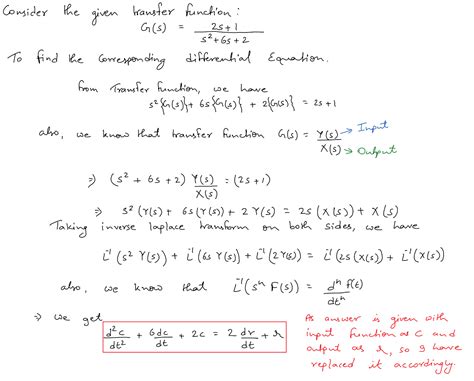 Consider the given transfer function :
G(s) = 2s+1 / s²+6s+2
To find the corresponding differential Equation.
from Transfer function, we have
s²{G(s)} + 6s{G(s)} + 2{G(s)} = 2s+1
also, we know that transfer function G(s) = Y(s) → Input / X(s) → Output
⇒ (s² + 6s + 2) Y(s) / X(s) = (2s+1)
⇒ s² (Y(s) + 6s(Y(s)) + 2 Y(s) = 2s (X(s)) + X(s)
Taking inverse laplace transform on both sides, we have
L⁻¹(s² Y(s)) + L⁻¹(6s Y(s)) + L⁻¹(2Y(s)) = L⁻¹(2s(X(s)) + L⁻¹(X(s))
also, we know that L⁻¹(sⁿ F(s)) = dⁿ f(t) / dtⁿ
⇒ we get
d²c/dt² + 6dc/dt + 2c = 2 dr/dt + r
As answer is given with
input function as C and
output as r, so I have
replaced it accordingly.